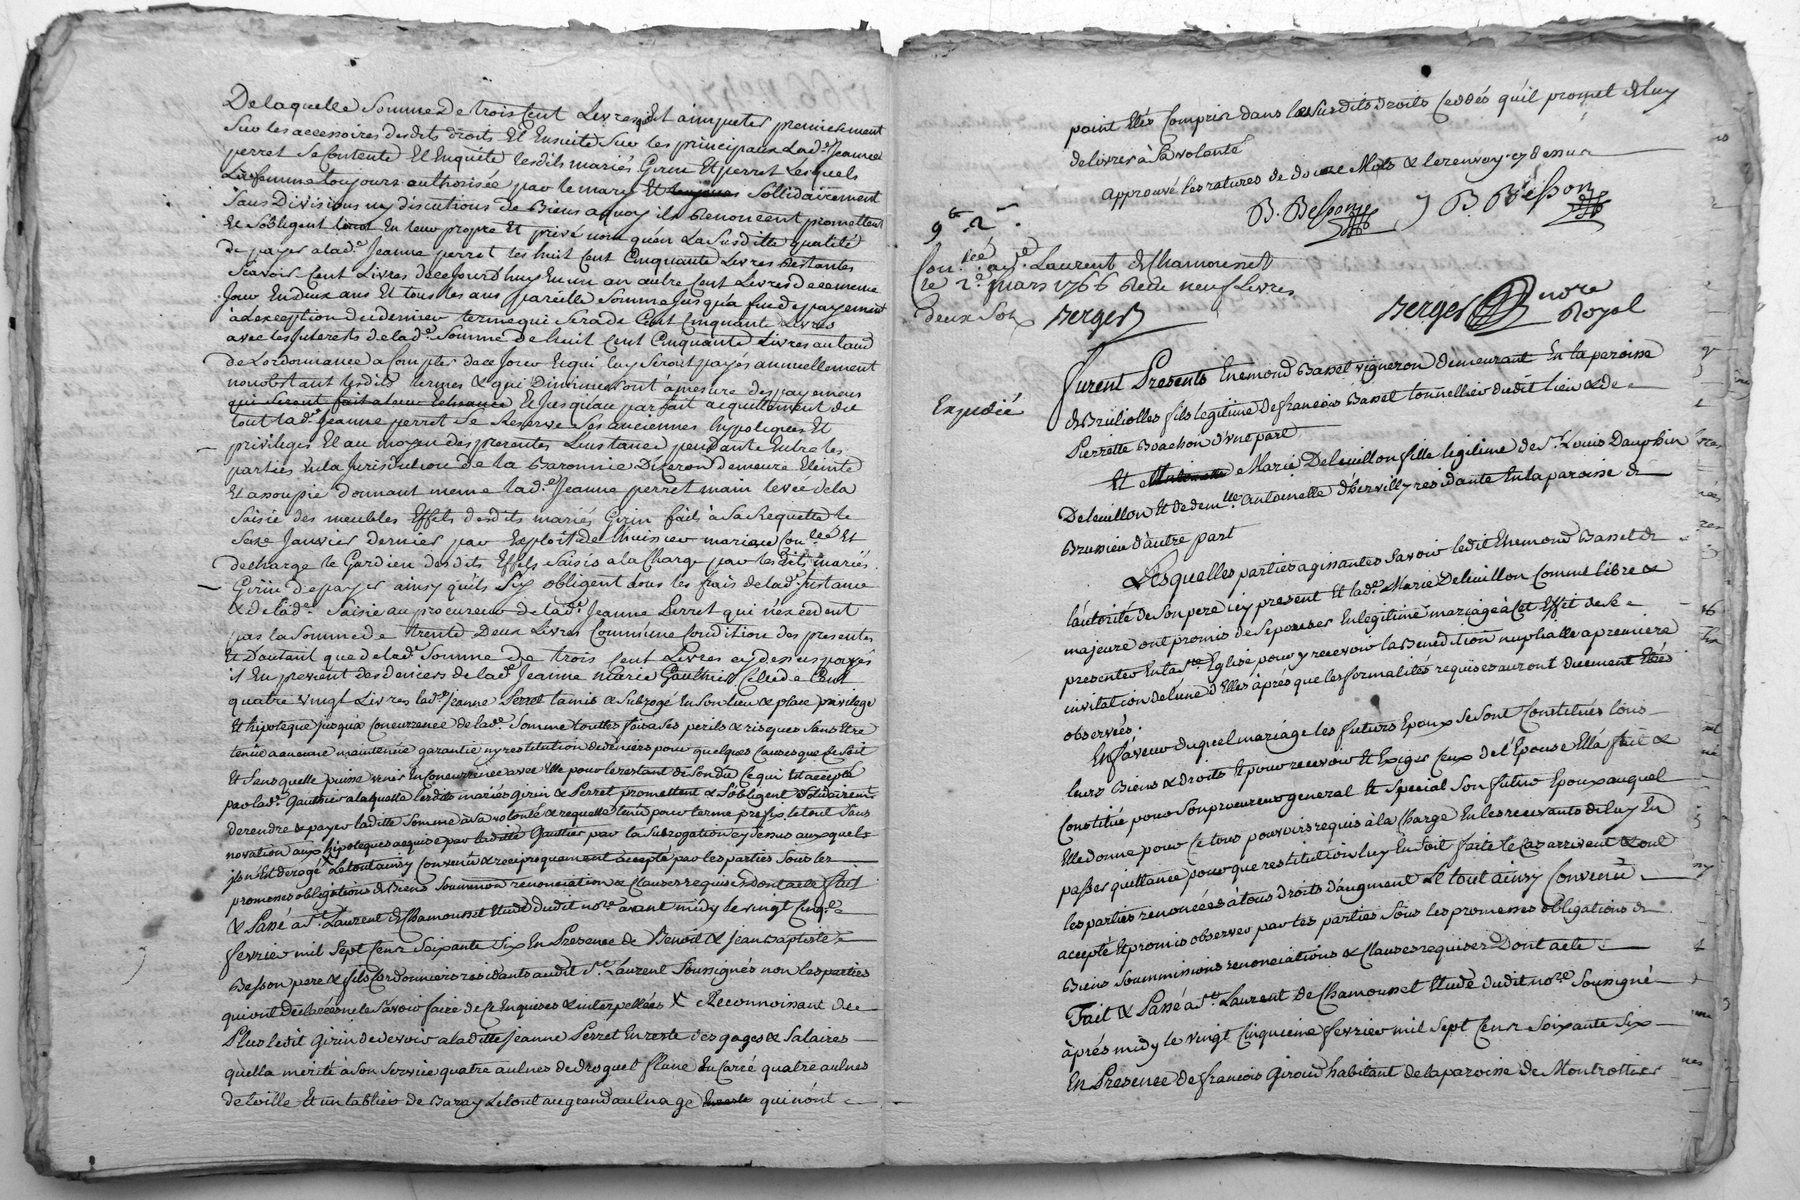 De laquelle Somme de trois Cent Livres qui s'impuster premierement
Sur les accessoires desdits droits Et Ensuite Sur les principaux Lad.e Jeanne
perret Se Contente Et Enquite lesdits mariés Girin Et perret Lesquels
La femme toujours authorisée par le mary Et Sollidairement
Sans Divisions ny discutions de Biens aquoy ils Renoncent promettent
Et Sobligent En leur propre Et privé nom qu'en La Susditte qualité
de payer a lad.e Jeanne perret les huit Cent Cinquante Livres Restantes
Scavoir Cent Livres dece jourd'huy En un an autre Cent Livres de ce meme
Jour En deux ans Et tous les ans pareille Somme Jusqu'a fin de payement
a d'exception du dernier terme qui Sera de Cent Cinquante Livres
avec les Interets de lad.e Somme de huit Cent Cinquante Livres au taux
de Lordonnance a Compter dece Jour Et qui luy Seront payés annuellement
nonobstant lesdits termes & qui Diminueront à mesure des payemens
qui Seront fait a leur Echeance Et Jusqu'au parfait acquittement du
tout lad.e Jeanne perret Se Reserve Ses anciennes hypoteques Et
privileges Et au moyen des presentes L'instance pendante Entre les
parties En la Jurisdiction de la Baronnie Diseron Demeure Eteinte
Et assoupie donnant meme lad.e Jeanne perret main levée dela
Saisie des meubles Effets desdits mariés Girin faits à Sa Requette le
Seze Janvier dernier par Exploit de Lhuissier marion Con.lée Et
decharge le Gardien desdits Effets Saisis a la Charge par lesdits mariés
Girin de payer ainsy qu'ils Sy obligent tous les frais de lad.e Instance
& de lad.e Saisie au procureur de lad.e Jeanne Perret qui n'excedent
pas la Somme de trente Deux Livres Comme une Condition des presentes
Et Dautant que de lad.e Somme de trois Cent Livres cy dessus payés
il En provient des deniers de lad.e Jeanne marie Gaulthier Celle de Cent
quatre vingt Livres lad.e Jeanne Perret la mis & Subrogé En Son lieu & place privilege
Et hipoteque jusqu'a Concurrence de lad.e Somme touttes fois a Ses perils & risques Sans Etre
tenüe a aucune maintenüe garantie ny restitution de deniers pour quelques Causes que Ce Soit
Et Sans quelle puisse venir En Concurrence avec Elle pour le restant de Son du Ce qui Est accepté
par lad.e Gauthier a laquelle lesdits mariés Girin & Perret promettent & S'obligent Solidairem.t
de rendre & payer laditte Somme à Sa volonté & requette tenu pour terme prefix, le tout Sans
novation aux hipoteques acquise par laditte Gautier par la Subrogation cy dessus auxquels
il n'Est derogé Le tout ainsy Convenu & reciproquement accepté par les parties Sous les
promesses obligations de Biens Soumission renonciation & Clauses requises Dont acte fait
& Passé a S.t Laurent de Chamousset Etude dudit no.re avant midy le vingt Cinq.e
fevrier mil Sept Cent Soixante Six En Presence de Benoit & jean Baptiste
Besson pere & fils Cordonniers residants audit S.t Laurent Soussignés non les parties
qui ont declarés ne le Savoir faire de Ce Enquises & interpellées X Reconnoissant de
Plus ledit Girin de devoir a laditte Jeanne Perret En reste des gages & Salaires
qu'ella mérité à Son Service quatre aulnes de droguet flane En Carié quatre aulnes
de toille Et un tablier de Baray Le tout au grand aulnage qui n'ont
point Etés Compris dans les Susdits droits Cedés qu'il promet de luy
delivrer à Sa volonté
Approuvé les ratures de douze Mots & le renvoy cy dessus
B. Besson B. Bésson
9# 2s
Con.lée a S.t Laurent de Chamousset
Ce 2.e mars 1766 Recu neuf Livres
deux Sols Berger
Berger no.re Royal
Expedié
furent Presents Enemond Basset vigneron demeurant En la paroisse
de Brullioles fils legitime de francois Basset tonnellier dudit lieu & de
Pierrette Boachon d'une part
Et Marie Deleuillon fille legitime de S.r Louis Dauphin
Deleuillon Et de dem.lle Antoinette d'hervilly residante En la paroisse de
Brussieu d'autre part
Lesquelles parties agissantes Savoir ledit Enemond Basset de
l'autorité de Son pere icy present Et lad.e Marie Deleuillon Comme libre &
majeure ont promis de Sepouser En legitime mariage à Cet Effet de Se
presenter En la S.te Eglise pour y recevoir la Benediction nuptialle a premiere
invitation de l'une d'Elles après que les formalités requises auront duement Etés
observées.
En faveur duquel mariage les futurs Epoux Se Sont Constitués tous
leurs Biens & droits Et pour recevoir Et Exiger Ceux de l'Epouse Ella fait &
Constitué pour Son procureur general Et Special Son futur Epoux auquel
Elle donne pour Ce tous pouvoirs requis à la Charge En les recevants de luy En
passer quittance pour que restitution luy En Soit faite le Cas arrivent & ont
les parties renoncées à tous droits d'augment Le tout ainsy Convenu
accepté Et promis observer par les parties Sous les promesses obligations de
Biens Soummissions renonciations & Clauses requises Dont acte
Fait & Passé a S.t Laurent de Chamousset Etude dudit no.re Soussigné
àprés midy le vingt Cinquieme fevrier mil Sept Cent Soixante Six
En Presence de francois Giroud habitant de la paroisse de Montrottier